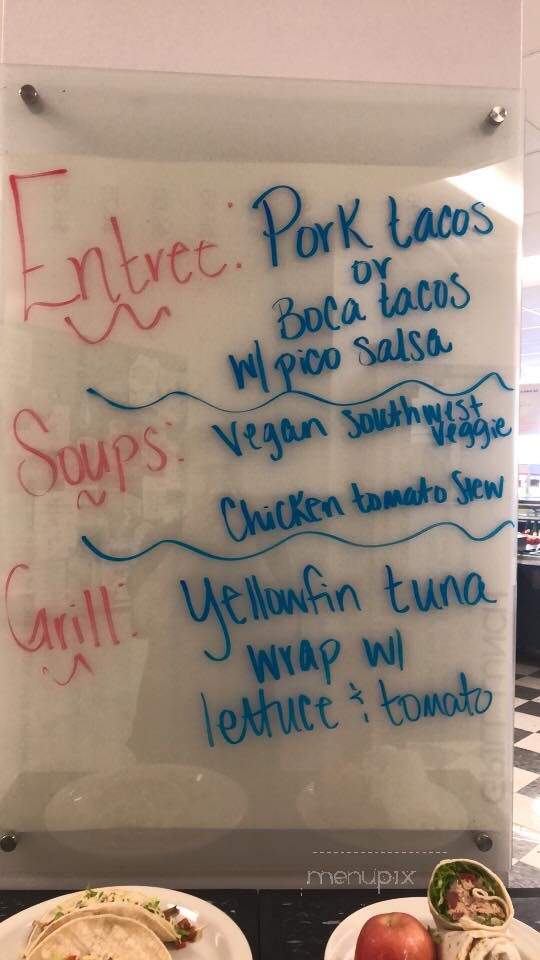 Entree: Pork tacos
or
Boca tacos
w/ pico salsa
Soups: Vegan Southwest
Veggie
Chicken tomato Stew
Grill: Yellowfin tuna
wrap w/
lettuce & tomato
menupix